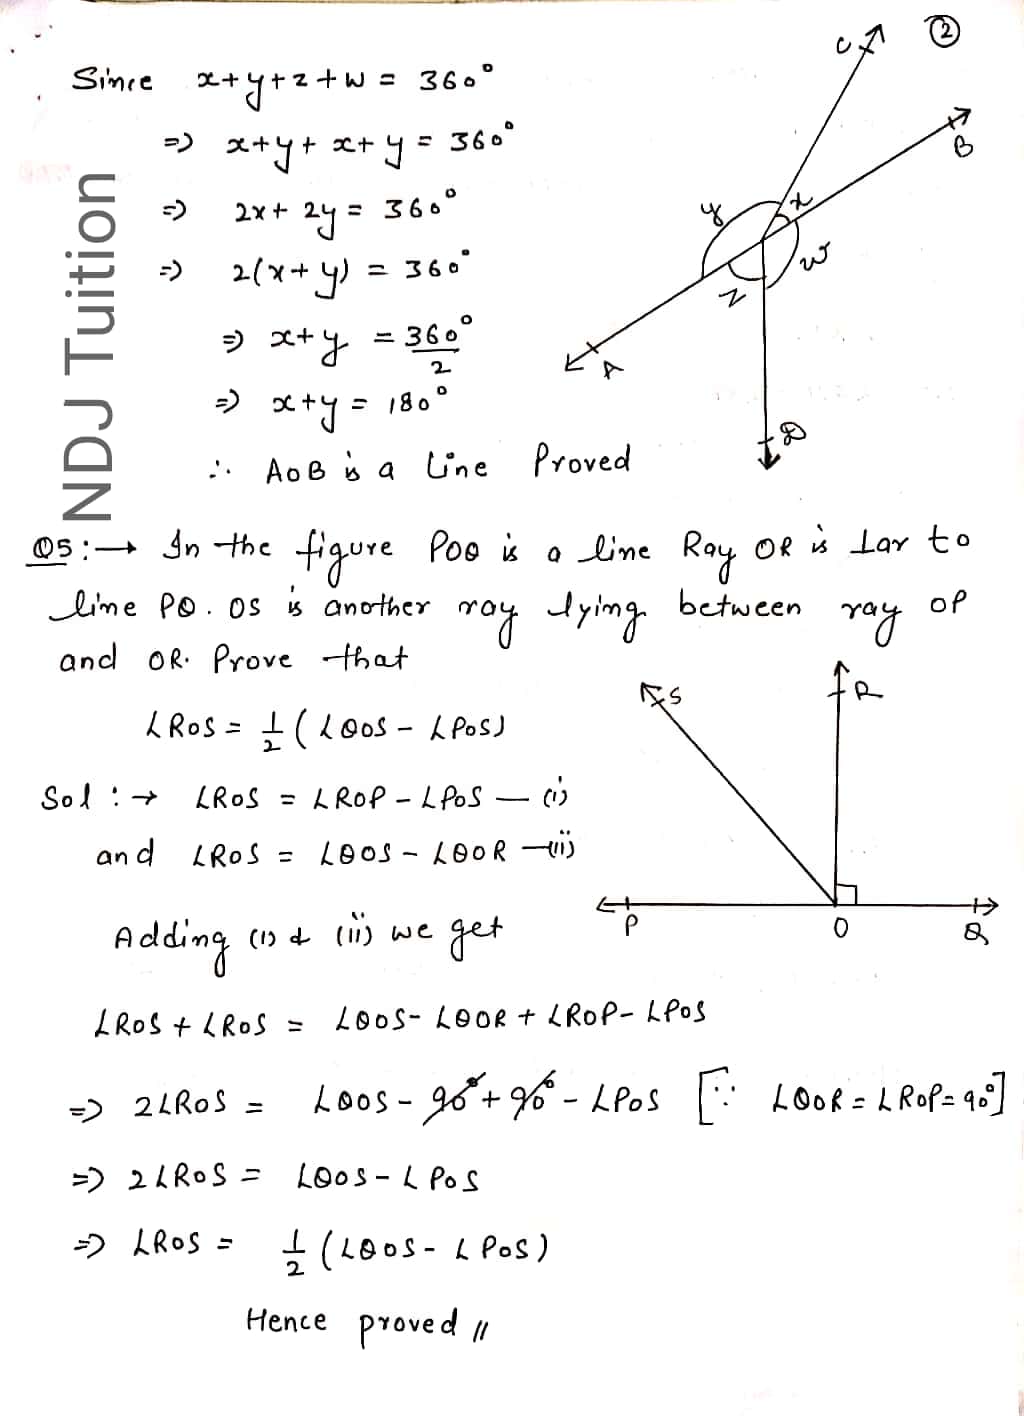 ②
Since x+y+z+w = 360°
=> x+y+x+y = 360°
=> 2x+2y = 360°
=> 2(x+y) = 360°
=> x+y = 360°/2
=> x+y = 180°
∴ AOB is a line Proved
C
B
x
y
w
z
A
D
NDJ Tuition
Q5:→ In the figure POQ is a line Ray OR is ⊥ar to
line PQ. OS is another ray lying between ray OP
and OR. Prove that
∠ROS = 1/2 (∠QOS - ∠POS)
S
R
P
O
Q
Sol :→ ∠ROS = ∠ROP - ∠POS — (i)
and ∠ROS = ∠QOS - ∠QOR — (ii)
Adding (i) & (ii) we get
∠ROS + ∠ROS = ∠QOS - ∠QOR + ∠ROP - ∠POS
=> 2∠ROS = ∠QOS - 90° + 90° - ∠POS [∵ ∠QOR = ∠ROP = 90°]
=> 2∠ROS = ∠QOS - ∠POS
=> ∠ROS = 1/2 (∠QOS - ∠POS)
Hence proved //